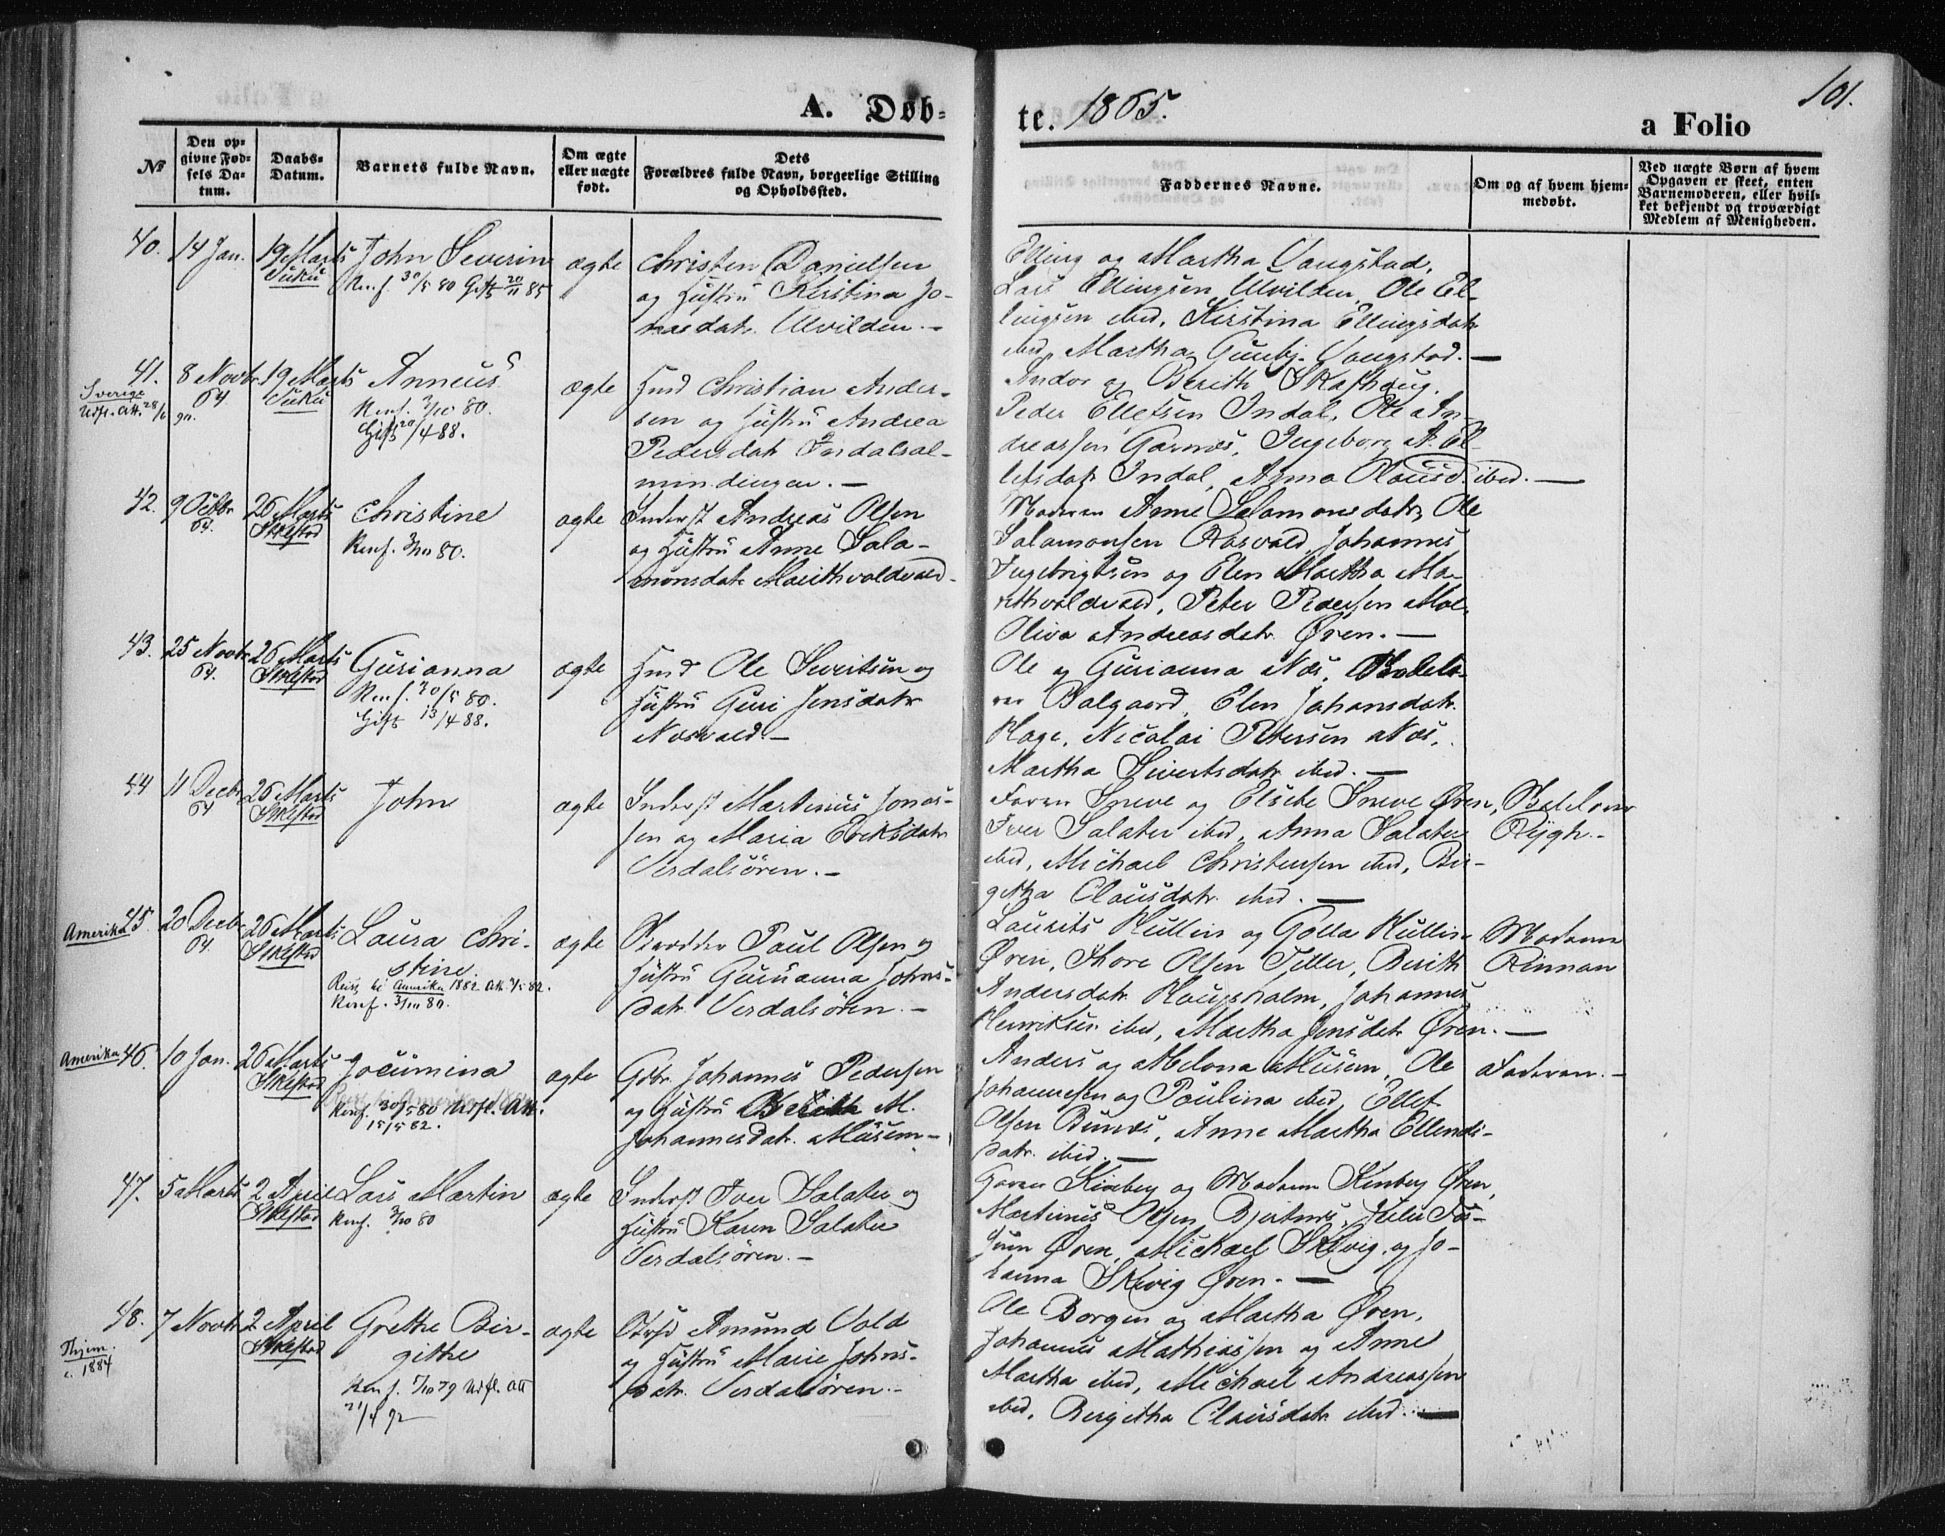 101.
A. Døb-
te. 1865.
a Folio
№
Den op-
givne Fød-
sels Da-
tum.
Daabs-
Datum.
Barnets fulde Navn.
Om ægte
eller uægte
født.
Dets
Forældres fulde Navn, borgerlige Stilling
og Opholdssted.
Faddernes Navne.
Om og af hvem hjem-
medøbt.
Ved uægte Børn af hvem
Opgaven er skeet, enten
Barnemoderen, eller hvil-
ket bekjendt og troværdigt
Medlem af Menigheden.
40. 14 Jan. 19 Marts
Vuku
John Severin
Konf. 30/5 80 Gift 20/11 85
ægte
Christen Danielsen
og Hustru Kirstina Jo-
nasdatr. Ulvilden.-
Elling og Martha Vangstad,
Lars Ellingsen Ulvilden, Ole El-
lingsen ibid, Kirstina Ellingsdatr
ibid, Martha Gunbj. Vangstad.-
41. 8 Novbr 64 19 Marts
Vuku
Sverige
Anneus
Konf. 3/10 80.
Gift 20/4 88.
ægte
Hmd Christian Ander-
sen og Hustru Andrea
Pedersdatr Indalsal-
mindingen.-
Andor og Berith Skafhaug,
Peder Elletsen Indal, Ole An-
dreassen Garnæs, Ingeborg A. El-
letsdatr Indal, Anna Olausd. ibid.-
42. 9 Octbr 64. 26 Marts
Stiklestad
Christine
Konf. 3/10 80.
ægte
Inderst Andreas Olsen
og Hustru Anne Sala-
monsdatr Marithvoldvald.
Moderen Anne Salamonsdatr, Ole
Salamonsen Rosvald, Johannes
Ingebrigtsen og Elen Martha Ma-
rithvoldvald, Peter Pedersen Mol,
Oliva Andreasdatr. Øren.-
43. 25 Novbr 64. 26 Marts
Stiklestad
Gurianna
Konf. 30/5 80.
Gift 13/4 88.
ægte
Hmd Ole Sivertsen og
Hustru Guri Jensdatr
Næsvald.-
Ole og Gurianna Næs,
Balgaard, Elen Johansdatr.
Hage, Nicolai Petersen Næs,
Martha Sivertsdatr ibid.-
44 11 Decbr 64 26 Marts
Stiklestad
John
ægte
Inderst Martinus Jonas-
sen og Maria Eriksdatr
Verdalsøren.-
Faren Sneve og Elsebe Sneve Øren,
Iver Salater ibid, Anna Salater
ibid, Michael Christensen ibid, Bir-
getha Clausdatr. ibid.-
Rygh.-
Amerika 45. 20 Decbr 64 26 Marts
Stiklestad
Laura Chri-
stine.
Reist til Amerika 1882
Konf. 3/10 80.
ægte
Paul Olsen og
Hustru Gurianna Johns-
datr. Verdalsøren.-
Laurits Hullin og Golla Hullin
Øren, Thore Olsen Tiller, Berith
Andersdatr Haugsholm, Johannes
Henriksen ibid, Martha Jensdatr Øren.-
Madam
Rinnan
Amerika 46. 10 Jan. 26 Marts
Stiklestad
Jocumina
Konf. 30/5 80 Udfl. Att.
15/5 82.
ægte
Gdbr. Johannes Pedersen
og Hustru Berith M.
Johannesdatr. Musem-
Anders og Melona Musem, Ole
Johannesen og Paulina ibid, Ellef
Olsen Bunæs, Anne Martha Ellends-
datr. ibid.-
Faderen.-
47. 5 Marts 2 April
Stiklestad
Lars Martin
Konf. 3/10 80
ægte
Inderst Iver Salater og
Hustru Karen Salater
Verdalsøren.-
Garver Kinberg og Madam Kinberg Øren,
Martinus Olsen Bjertnes, Julie Fos-
sum Øren, Mickael Skevig, og Jo-
hanna Skevig Øren.-
48. 7 Novbr 2 April
Stiklestad
Hjem.
c. 1884
Grethe Bir-
githe
Konf. 5/10 79 Udfl. Att
21/4 92
ægte
Amund Vold
og Hustru Marie Johns-
datr. Verdalsøren.-
Ole Borgen og Martha Øren,
Johannes Mathiassen og Anne
Martha ibid, Michael Andreassen
ibid, Bergitha Clausdatr ibid.-